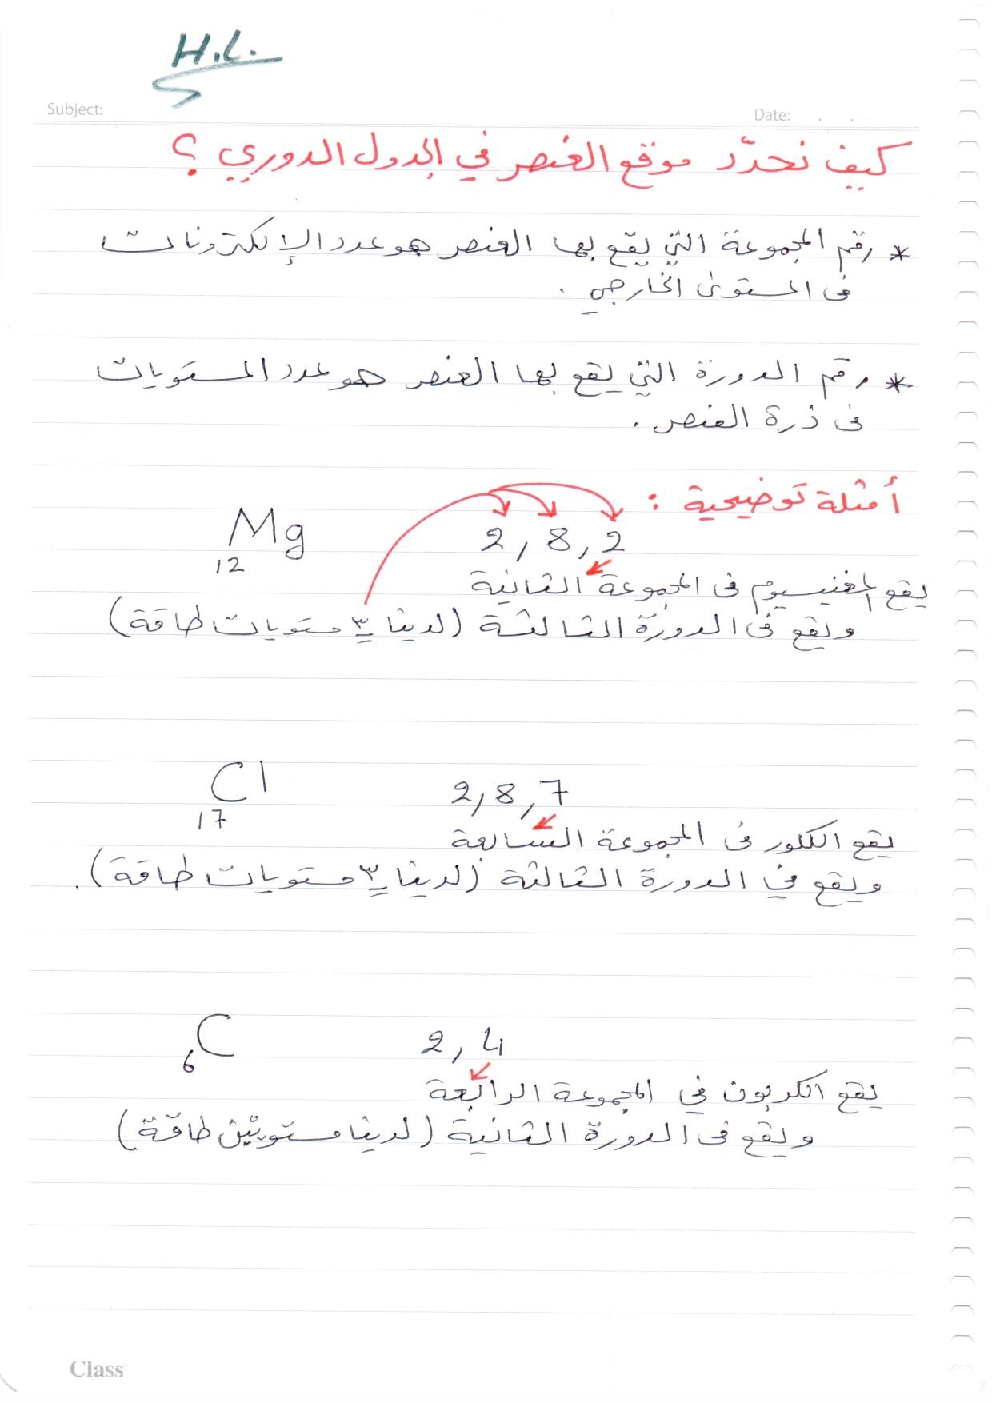 H.L.
Subject:
Date: . .
كيف نحدّد موقع العنصر في الجدول الدوري ؟
* رقم المجموعة التي يقع بها العنصر هو عدد الإلكترونات
في المستوى الخارجي .
* رقم الدورة التي يقع بها العنصر هو عدد المستويات
في ذرة العنصر .
أمثلة توضيحية :
2 , 8 , 2 Mg
12
يقع المغنيسيوم في المجموعة الثانية
ويقع في الدورة الثالثة (لدينا ٣ مستويات طاقة)
2 , 8 , 7 Cl
17
يقع الكلور في المجموعة السابعة
ويقع في الدورة الثالثة (لدينا ٣ مستويات طاقة) .
2 , 4 C
6
يقع الكربون في المجموعة الرابعة
ويقع في الدورة الثانية (لدينا مستويين طاقة)
Class